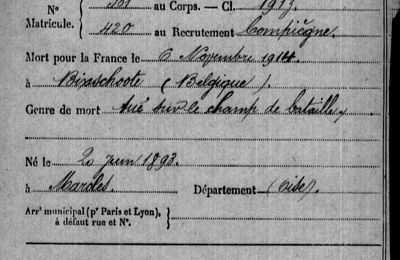 Nº au Corps. — Cl. 1913.
Matricule. 420 au Recrutement Compiègne
Mort pour la France le 6 Novembre 1914
à Bixschoote (Belgique).
Genre de mort tué sur le champ de bataille
Né le 20 juin 1893.
à Maroles Département (Oise).
Arrt municipal (pr Paris et Lyon),
à défaut rue et Nº.